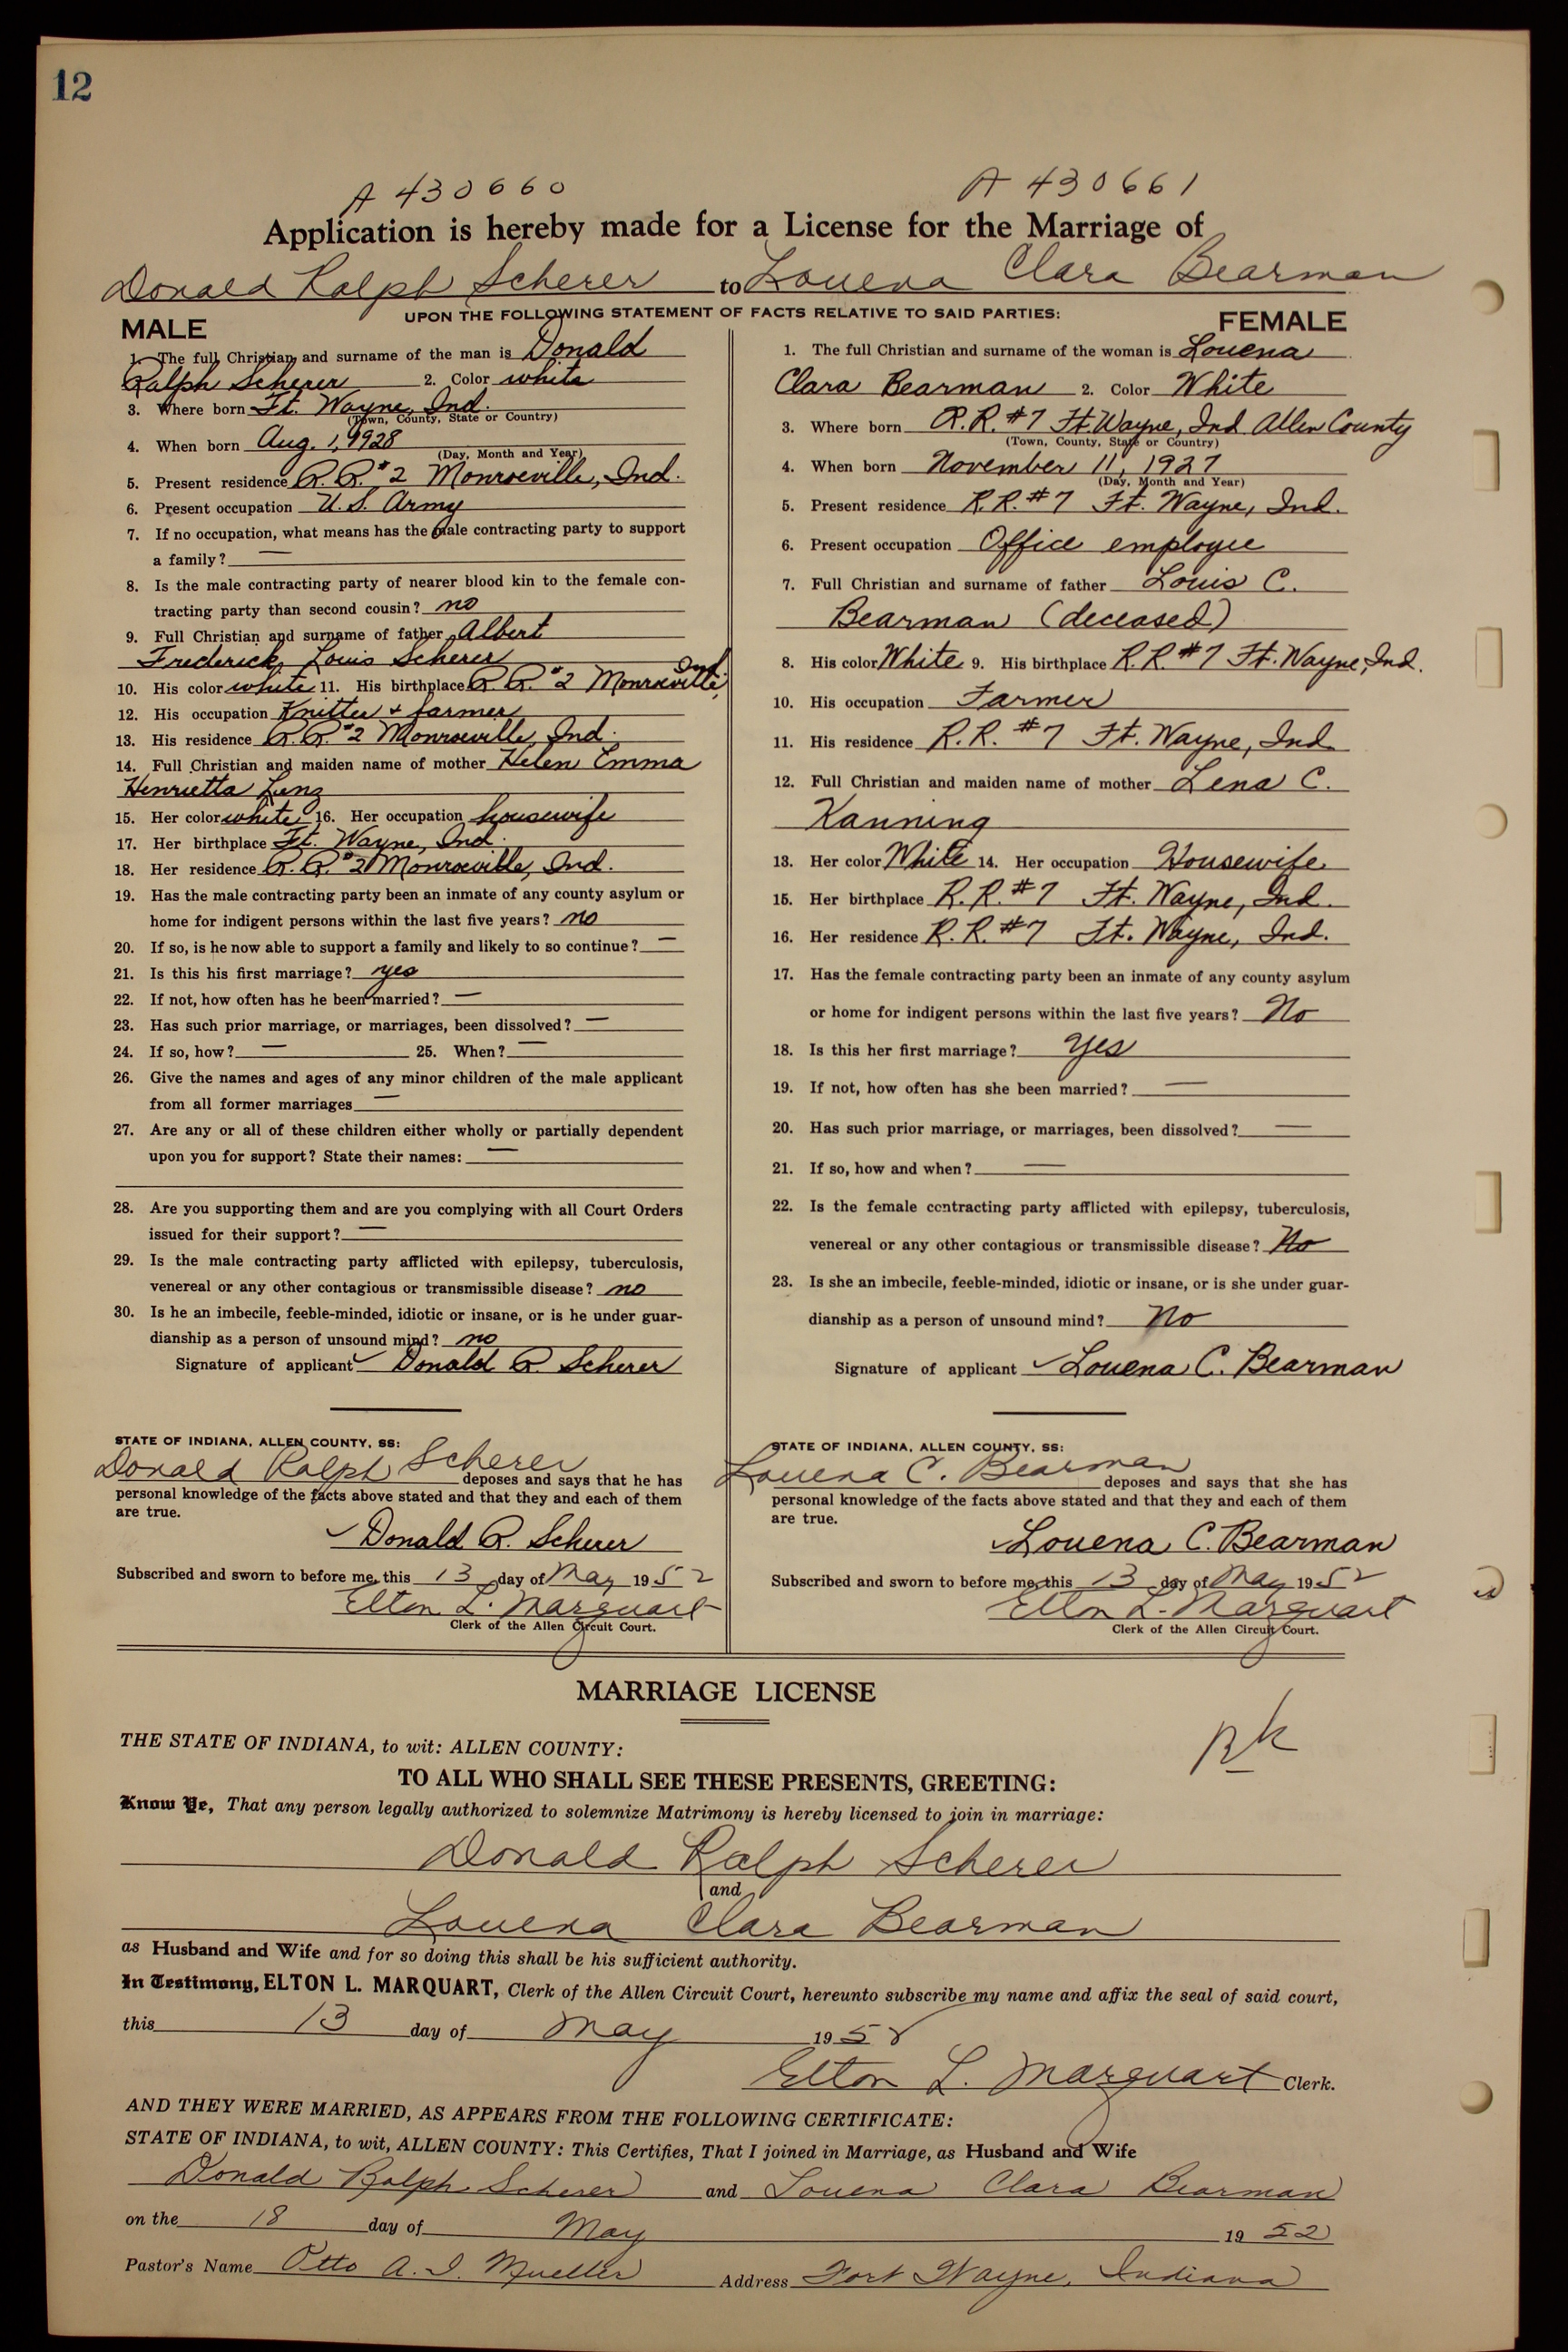 12
A 430660 A 430661
Application is hereby made for a License for the Marriage of
Donald Ralph Scherer to Louena Clara Bearman
UPON THE FOLLOWING STATEMENT OF FACTS RELATIVE TO SAID PARTIES:
MALE
1. The full Christian and surname of the man is Donald
Ralph Scherer 2. Color white
3. Where born Ft. Wayne, Ind.
(Town, County, State or Country)
4. When born Aug. 1, 1928
(Day, Month and Year)
5. Present residence R.R. #2 Monroeville, Ind.
6. Present occupation U.S. Army
7. If no occupation, what means has the male contracting party to support
a family? —
8. Is the male contracting party of nearer blood kin to the female con-
tracting party than second cousin? no
9. Full Christian and surname of father Albert
Frederick Louis Scherer
10. His color white 11. His birthplace R.R. #2 Monroeville, Ind.
12. His occupation Knitter + farmer
13. His residence R.R. #2 Monroeville, Ind.
14. Full Christian and maiden name of mother Helen Emma
Henrietta Lenz
15. Her color white 16. Her occupation housewife
17. Her birthplace Ft. Wayne, Ind.
18. Her residence R.R. #2 Monroeville, Ind.
19. Has the male contracting party been an inmate of any county asylum or
home for indigent persons within the last five years? no
20. If so, is he now able to support a family and likely to so continue? —
21. Is this his first marriage? yes
22. If not, how often has he been married? —
23. Has such prior marriage, or marriages, been dissolved? —
24. If so, how? — 25. When? —
26. Give the names and ages of any minor children of the male applicant
from all former marriages —
27. Are any or all of these children either wholly or partially dependent
upon you for support? State their names: —
28. Are you supporting them and are you complying with all Court Orders
issued for their support? —
29. Is the male contracting party afflicted with epilepsy, tuberculosis,
venereal or any other contagious or transmissible disease? no
30. Is he an imbecile, feeble-minded, idiotic or insane, or is he under guar-
dianship as a person of unsound mind? no
Signature of applicant ✓ Donald R. Scherer
STATE OF INDIANA, ALLEN COUNTY, SS:
Donald Ralph Scherer deposes and says that he has
personal knowledge of the facts above stated and that they and each of them
are true.
✓ Donald R. Scherer
Subscribed and sworn to before me, this 13 day of May 1952
Elton L. Marquart
Clerk of the Allen Circuit Court.
FEMALE
1. The full Christian and surname of the woman is Louena
Clara Bearman 2. Color White
3. Where born R.R. #7 Ft. Wayne, Ind. Allen County
(Town, County, State or Country)
4. When born November 11, 1927
(Day, Month and Year)
5. Present residence R.R. #7 Ft. Wayne, Ind.
6. Present occupation Office employee
7. Full Christian and surname of father Louis C.
Bearman (deceased)
8. His color White 9. His birthplace R.R. #7 Ft. Wayne, Ind.
10. His occupation Farmer
11. His residence R.R. #7 Ft. Wayne, Ind.
12. Full Christian and maiden name of mother Lena C.
Kanning
13. Her color White 14. Her occupation Housewife
15. Her birthplace R.R. #7 Ft. Wayne, Ind.
16. Her residence R.R. #7 Ft. Wayne, Ind.
17. Has the female contracting party been an inmate of any county asylum
or home for indigent persons within the last five years? No
18. Is this her first marriage? Yes
19. If not, how often has she been married? —
20. Has such prior marriage, or marriages, been dissolved? —
21. If so, how and when? —
22. Is the female contracting party afflicted with epilepsy, tuberculosis,
venereal or any other contagious or transmissible disease? No
23. Is she an imbecile, feeble-minded, idiotic or insane, or is she under guar-
dianship as a person of unsound mind? No
Signature of applicant ✓ Louena C. Bearman
STATE OF INDIANA, ALLEN COUNTY, SS:
Louena C. Bearman deposes and says that she has
personal knowledge of the facts above stated and that they and each of them
are true.
✓ Louena C. Bearman
Subscribed and sworn to before me, this 13 day of May 1952
Elton L. Marquart
Clerk of the Allen Circuit Court.
MARRIAGE LICENSE
THE STATE OF INDIANA, to wit: ALLEN COUNTY:
TO ALL WHO SHALL SEE THESE PRESENTS, GREETING:
Know Ye, That any person legally authorized to solemnize Matrimony is hereby licensed to join in marriage:
Donald Ralph Scherer
and
Louena Clara Bearman
as Husband and Wife and for so doing this shall be his sufficient authority.
In Testimony, ELTON L. MARQUART, Clerk of the Allen Circuit Court, hereunto subscribe my name and affix the seal of said court,
this 13 day of May 1952
Elton L. Marquart Clerk.
AND THEY WERE MARRIED, AS APPEARS FROM THE FOLLOWING CERTIFICATE:
STATE OF INDIANA, to wit, ALLEN COUNTY: This Certifies, That I joined in Marriage, as Husband and Wife
Donald Ralph Scherer and Louena Clara Bearman
on the 18 day of May 1952
Pastor's Name Otto A. I. Mueller Address Fort Wayne, Indiana